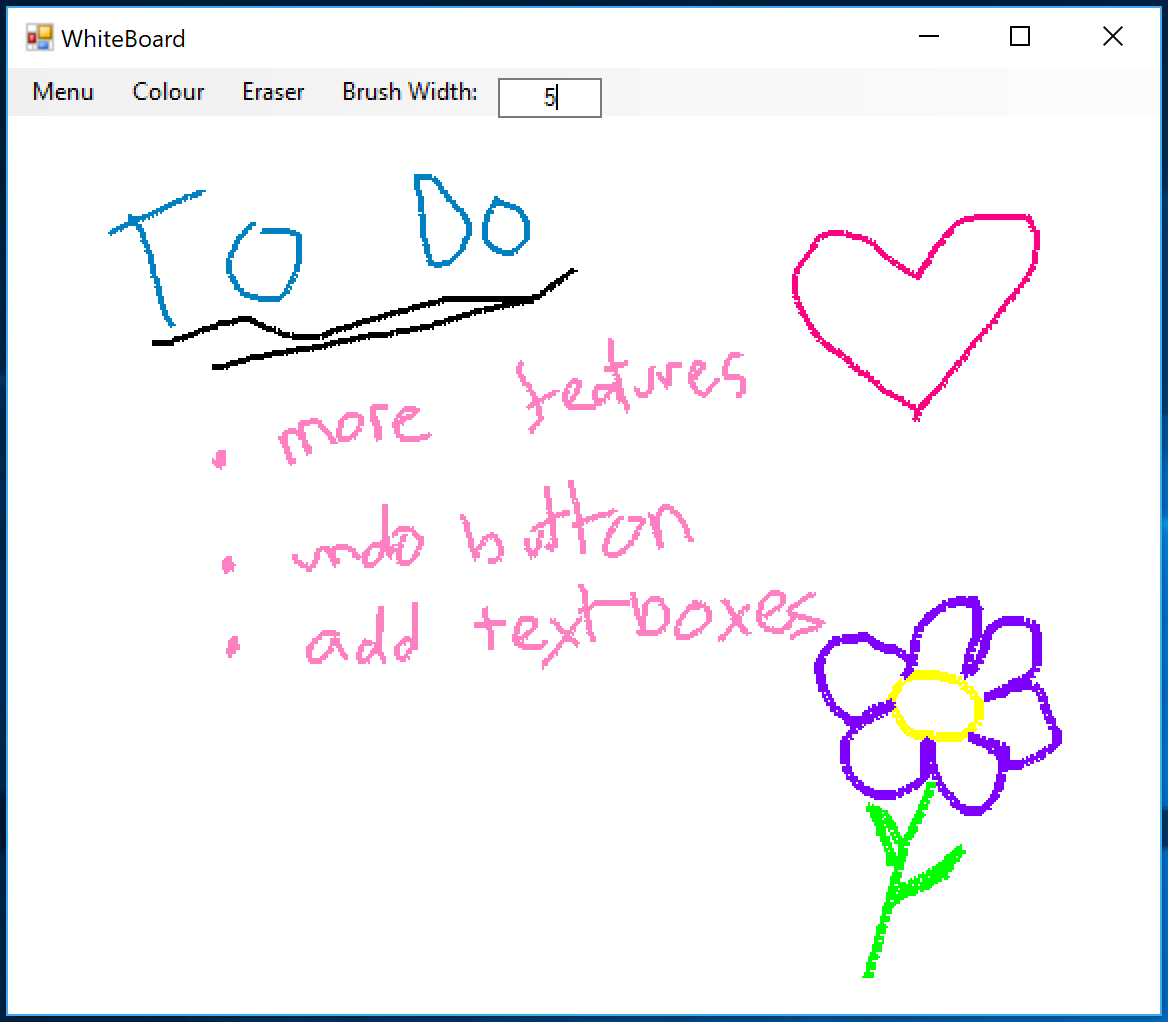 WhiteBoard
Menu Colour Eraser Brush Width: 5
To Do
• more features
• undo button
• add textboxes